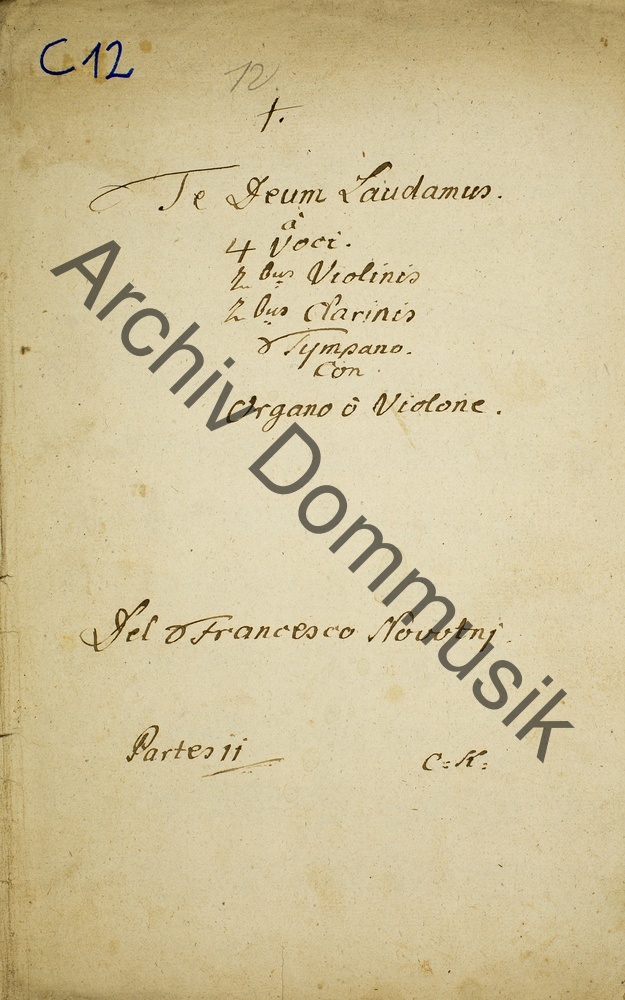 C12
12.
†.
Te Deum Laudamus.
à
4 Voci.
2 bus Violinis
2 bus Clarinis
Tympano.
Con
Organo ô Violone.
Del Francesco Novotnj
Partes 11
C:K:
Archiv Dommusik